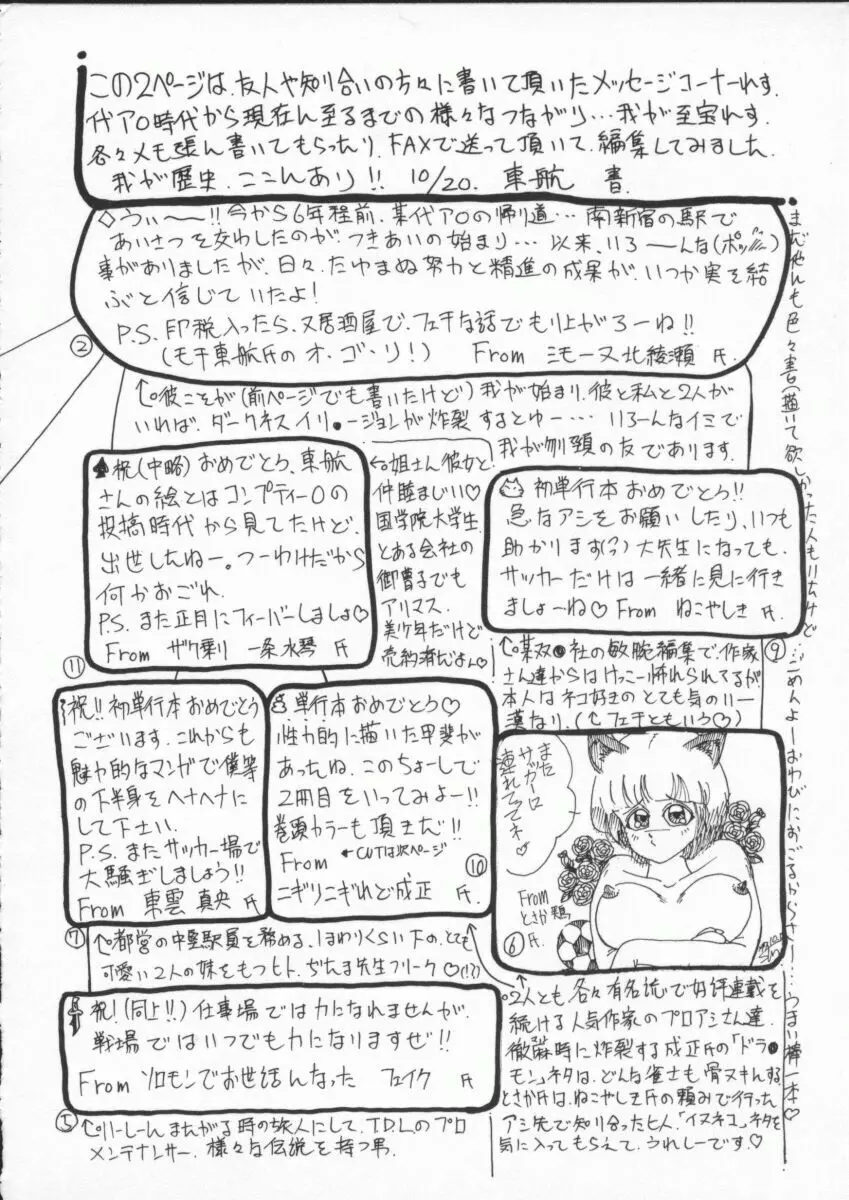 この2ページは、友人や知り合いの方々に書いて頂いたメッセージコーナーれす.
代ア○時代から現在ん至るまでの様々なつながり…我が至宝れす.
各々メモ張ん書いてもらったり、FAXで送って頂いて、編集してみました.
我が歴史、ここんあり!! 10/20. 東航 書
◇うぃ〜〜!!今から6年程前、某代ア○の帰り道…南新宿の駅で
あいさつを交わしたのが、つきあいの始まり…以来、いろーーんな(ポッ)
事がありましたが、日々、たゆまぬ努力と精進の成果が、いつか実を結
ぶと信じていたよ!
P.S. 印税入ったら、又居酒屋で、フェチな話でもり上がろーね!!
(モチ東航氏のオ・ゴ・リ!) From ミモーヌ北綾瀬 氏.
②
↑○彼こそが(前ページでも書いたけど)我が始まり、彼と私と2人が
いれば、ダークネスイリ●ージョンが炸裂するとゆー…いろーんなイミで
我が刎頸の友であります.
♠祝(中略)おめでとう、東航
さんの絵とはコンプティー○の
投稿時代から見てたけど、
出世したねー。つーわけだから
何かおごれ.
P.S. また正月にフィーバーしましょ♡
From ザク乗り 一条水琴 氏
⑪
←○姐さん彼女と
仲睦まじい♡
国学院大学生.
とある会社の
御曹子でも
アリマス.
美少年だけど
売約済だよん♡
初単行本おめでとう!!
急なアシをお願いしたり、いつも
助かります(?)大先生になっても、
サッカーだけは一緒に見に行き
ましょーね♡ From ねこやしき 氏.
⑨
↑○某双●社の敏腕編集で、作家
さん達からはけっこー怖れられてるが
本人はネコ好きのとても気のいー
漢なり.(↑フェチともいう♡)
祝!!初単行本おめでとう
ございます.これからも
魅力的なマンガで僕等
の下半身をヘナヘナに
して下さい.
P.S. またサッカー場で
大騒ぎしましょう!!
From 東雲 真央 氏
⑦
単行本おめでとう♡
性力的に描いた甲斐が
あったね.このちょーしで
2冊目をいってみよー!!
巻頭カラーも頂きだ!!
From ←CUTは次ページ
ニギリニギれど成正 氏.
⑩
また
サッカーに
連れてってネ♡
From
とさか鶏
氏.
⑥
↑○都営の中堅駅員を務める、1まわりくらい下の、とても
可愛い2人の妹をもつヒト、ぢたま先生フリーク♡(!?)
祝!(同上!!)仕事場では力になれませんが、
戦場ではいつでも力になりますぜ!!
From ソロモンでお世話んなった フェイク 氏
⑤
↑○りーしーん まんがる時の旅人にして、T.D.L.のプロ
メンテナンサー、様々な伝説を持つ男.
○2人とも、各々有名誌で好評連載を
続ける人気作家のプロアシさん達.
徹麻時に炸裂する成正氏の「ドラ●
モン」ネタは、どんな雀士も骨ヌキんする
とさか氏は、ねこやしき氏の頼みで行った
アシ先で知り合ったヒト、「イヌネコ」ネタを
気に入ってもらえて、うれしーです.♡
まだやんも色々書(描)いて欲しかった人もいたけど…ごめんよーおわびにおごるからさー…うまい棒一本♡